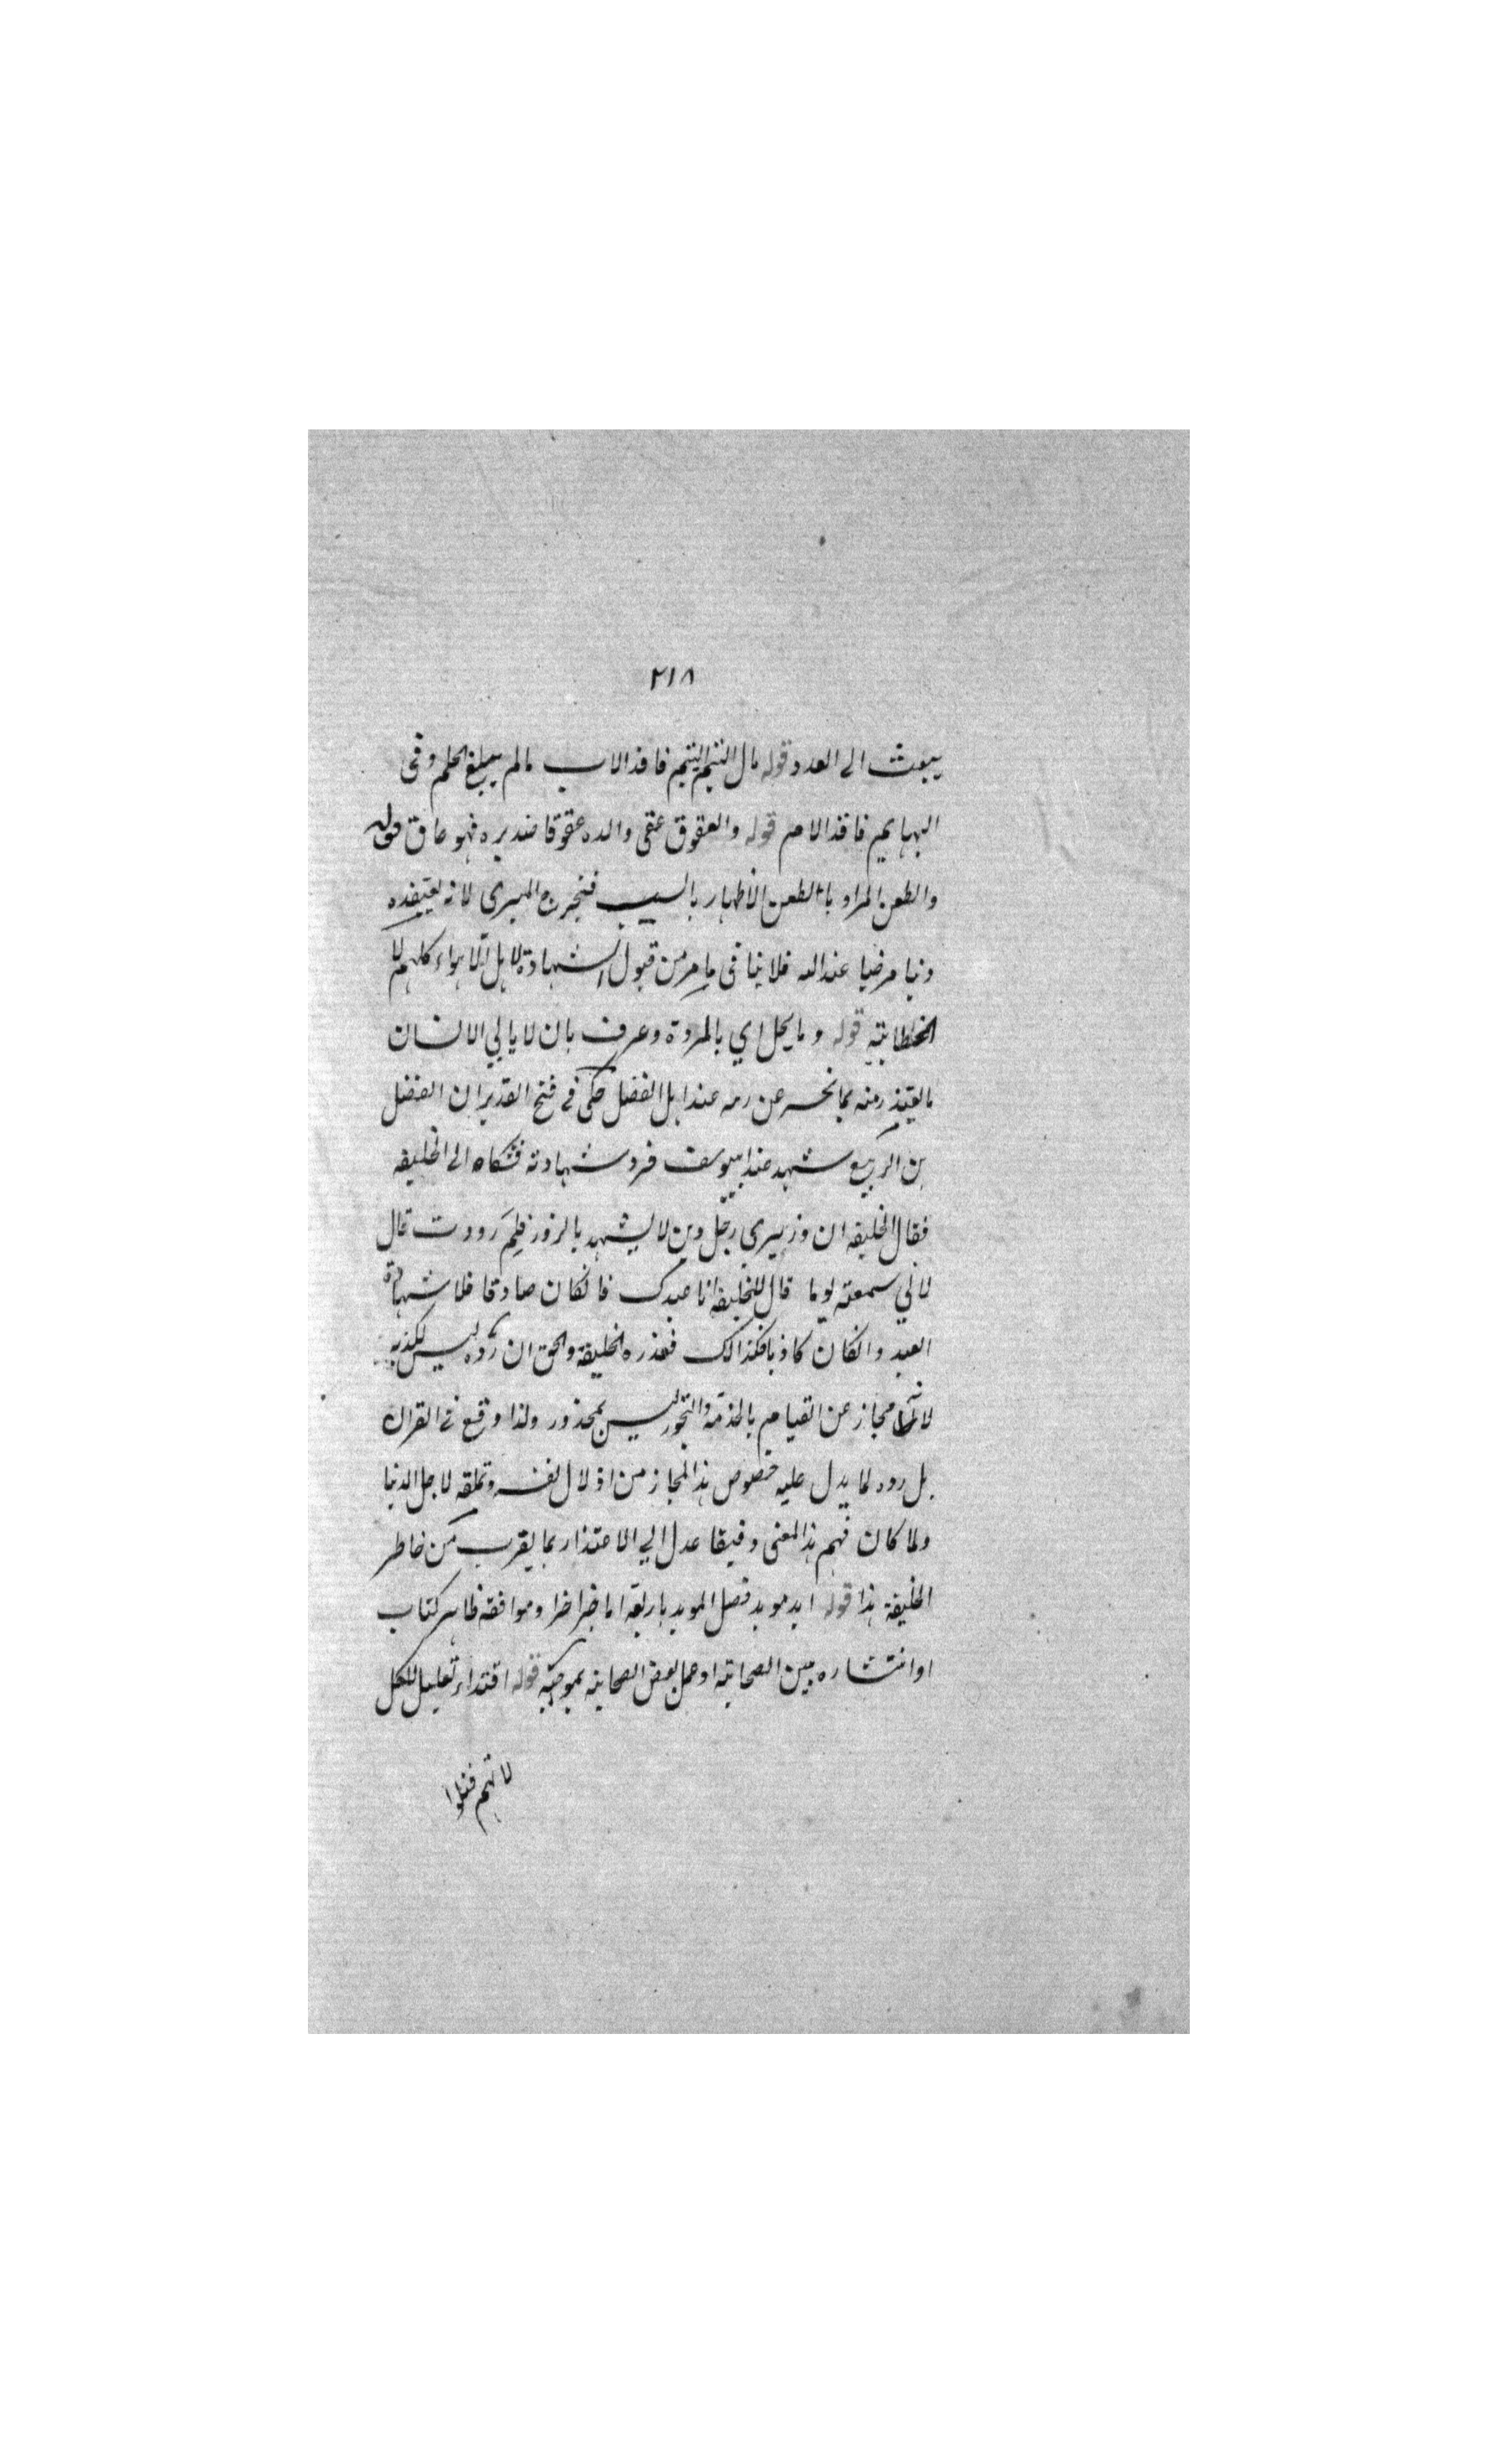 ٢١٨
يبعث الى العدد قوله مال اليتيم اليتيم فاقد الاب مالم يبلغ الحلم وفى
البهايم فاقد الام قوله والعقوق عقى والده عقوقا ضد بره فهو عاق قوله
والطعن المراد بالطعن الاظهار بالسب فنخرج المبرى لانه يعتقده
دنيا مرضيا عند الله فلا ينافى مامر من قبول الشهادة لاهل الاهواء كلهم الا
الخطابية قوله وما يخل اي بالمروة وعرف بان لا ياتي الانسان
ما يعتذر منه مما نجسه عن عند اهل الفضل حكى في فتح القدير ان الفضل
بن الربيع شهد عند ابيوسف فرد شهادته فشكاه الى الخليفه
فقال الخليفه ان وزيرى رجل دين لا يشهد بالزور فلم رددت قال
لاني سمعته يوما قال للخليفه انا عبدك فانكان صادقا فلا شهادة
العبد وانكان كاذبا فكذالك فعذره الخليفة والحق ان رده ليس لكذبه
لانه مجاز عن القيام بالخدمة والتجوز ليس بمحذور ولذا وقع في القران
بل رده لما يدل عليه خصوص هذا المجاز من اذلال نفسه وتملقه لاجل الدنيا
ولما كان فهم هذا المعنى دقيقا عدل الي الاعتذار بما يقرب من خاطر
الخليفة هذا قوله ايد مويد فصل المويد باربعة اما خبر اخر او موافقه ظاهر كتاب
او انتشاره بين الصحابة او عمل بعض الصحابه بموجبه قوله اقتداء تعليل للكل
لانهم قتلوا